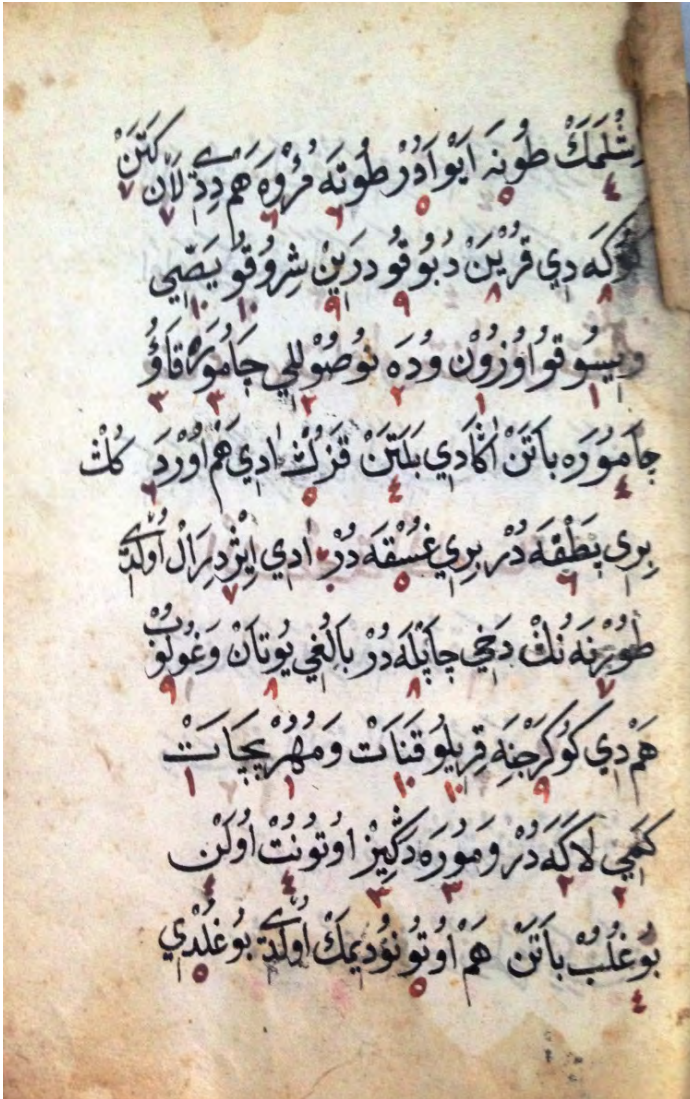 طُونَه اَيَوْ اَدُرْ طُوتَه فُرْوَه هَمْ دِدِى لَانْ كَتَنْ
دِي قُرْيَنْ دُبُوقُو دَرَيِنْ شِرُوقُو يَصِّي
وِيسُوقُو اُوزُونْ وُدَه نُوصُوللي جَامُورَه قَاوُ
جَامُورَه بَاتَنْ اَكْلَادِي بَلَتَنْ قَزْلُتْ اِدِي هَمْ اُوْرَدَ كُلتْ
بِرِي پَطْقَه دُرْ بِرِي غُسْقَه دُرْ اِدِي اُولْدِى
نُكْ دَخِي چَاپْلَه دُرْ بَالُغِي يُوتَانْ وَغُولُوبْ
هَمْ دِي كُوكَرْجِنَه قِرِيلُو قَنَاتْ وَمُهُرْ پِچَاتْ
كَمِي لَاكَه دُرْ وَمُورَه دَكِّيزْ اوُتُونُتْ اوُلَنْ
بُوغُلُبْ بَاتَنْ هَمْ اوُتُونُو دِيمَكْ اُولْدِى بُوغُلْدِي